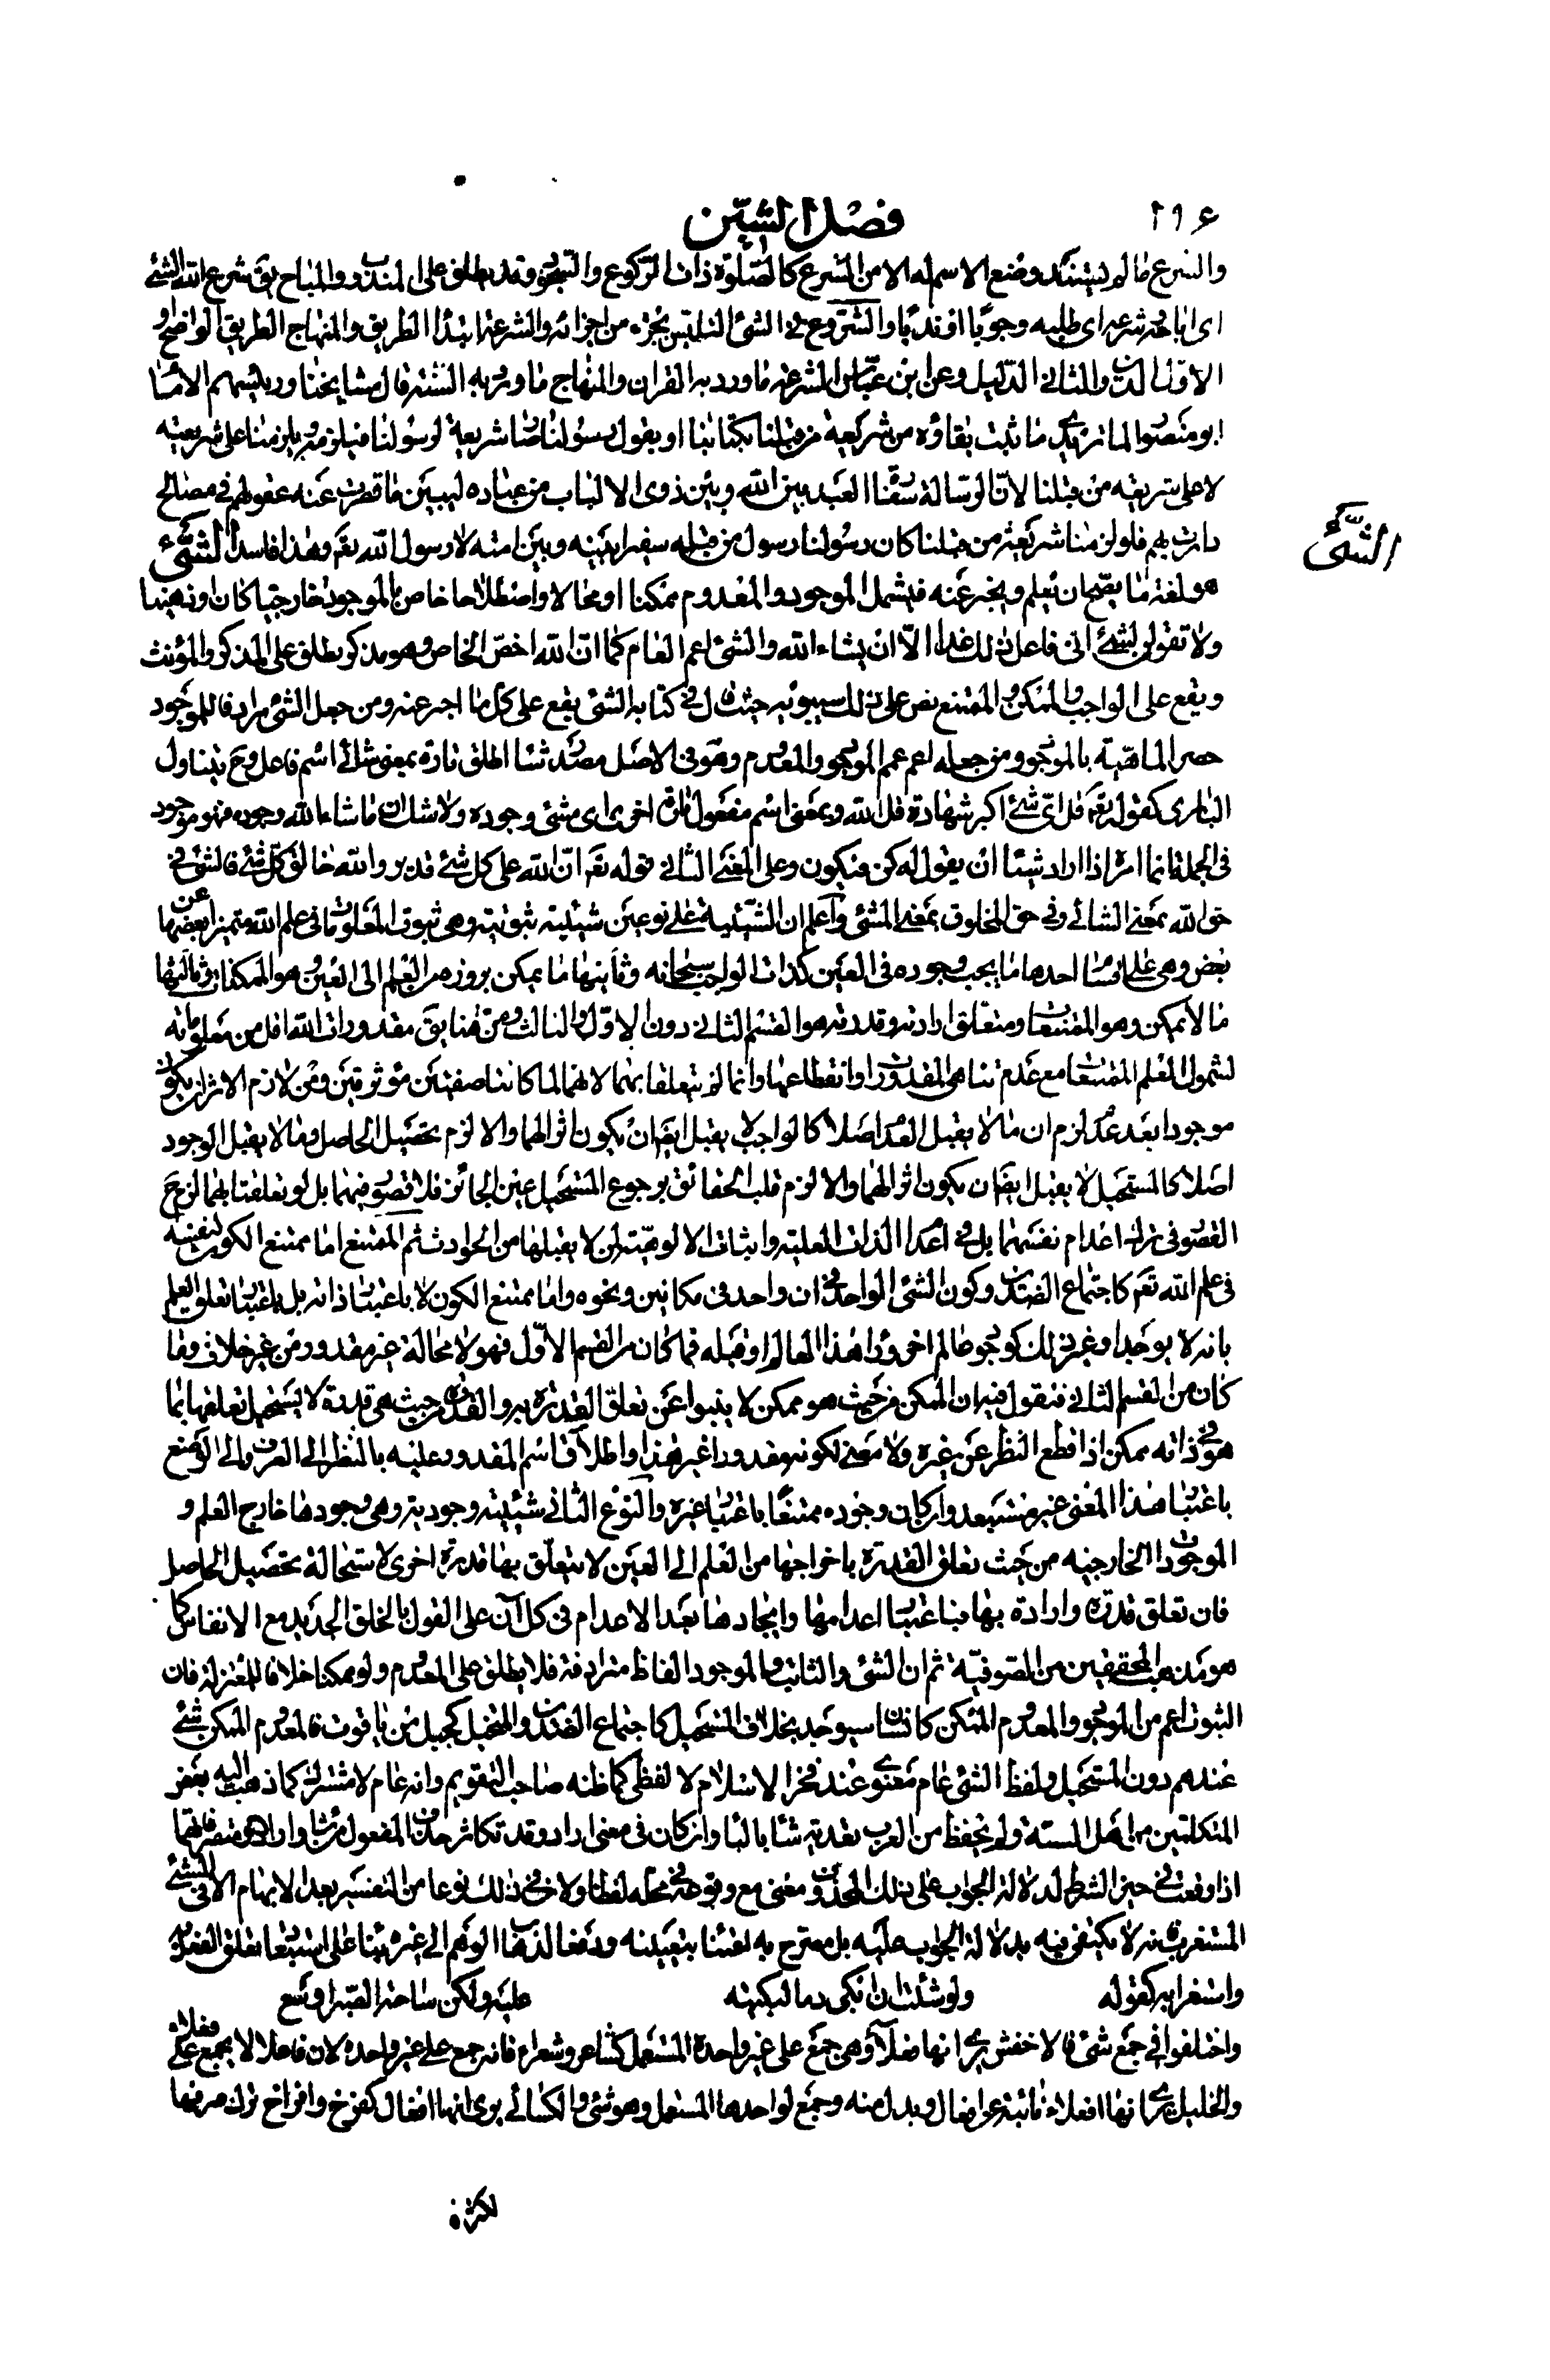 ٢١٤
فصل الشين
والشرع ما لم يستند وضع الاسم له الا من الشرع كالصلوة ذات الركوع والسجود وقد يطلق على المندوب والمباح يق شرع الله الشئ
اى اباحه وشرعه اى طلبه وجوبا او ندبا والشروع فى الشئ التلبس بجزء من اجزائه والشرعة ابتداء الطريق والمنهاج الطريق الواضح او
الاول الدين والثانى الدليل وعن ابن عباس الشرعة ما ورد به القران والمنهاج ما ورد به السنة قال مشايخنا ورئيسهم الامام
ابو منصور الماتريدى ما ثبت بقاؤه من شريعة من قبلنا بكتابنا او بقول رسولنا صار شريعة لرسولنا فيلزمه ويلزمنا على شريعته
لا على شريعة من قبلنا لان الرسالة سفارة العبد بين الله وبين ذوى الالباب من عباده ليبين ما قصرت عنه عقولهم فى مصالح
داريهم فلو لزمنا شريعة من قبلنا كان رسولنا رسول من قبله سفيرا بينه وبين امته لا رسول الله تعم وهذا فاسد الشئ
الشئ
هو لغة ما يصح ان يعلم ويخبر عنه فيشمل الموجود والمعدوم ممكنا او محالا واصطلاحا خاص بالموجود خارجيا كان او ذهنيا
ولا تقولن لشئ انى فاعل ذلك غدا الا ان يشاء الله والشئ اعم العام كما ان الله اخص الخاص وهو مذكر يطلق على المذكر والمؤنث
ويقع على الواجب والممكن والممتنع نص على ذلك سيبويه حيث قال فى كتابه الشئ يقع على كل ما اخبر عنه ومن جعل الشئ مرادفا للموجود
حصر الماهية بالموجود ومن جعله اعم عمم الموجود والمعدوم وهو فى الاصل مصدر شاء اطلق تارة بمعنى شائى اسم فاعل وح يتناول
البارى كقوله تعم قل اى شئ اكبر شهادة قل الله وبمعنى اسم مفعول تارة اخرى اى مشئ وجوده ولا شك ان ما شاء الله وجوده فهو موجود
فى الجملة انما امره اذا اراد شيئا ان يقول له كن فيكون وعلى المعنى الثانى قوله تعم ان الله على كل شئ قدير والله خالق كل شئ فالشئ فى
حق الله بمعنى الشائى وفى حق المخلوق بمعنى المشئ واعلم ان الشيئية على نوعين شيئية ثبوتية وهى ثبوت المعلومات فى علم الله متميزا بعضها عن
بعض وهى على اقسام احدها ما يجب وجوده فى العين كذات الواجب سبحانه وثانيها ما يمكن بروزه من العلم الى العين وهو الممكنات وثالثها
ما لا يمكن وهو الممتنعات ومتعلق ارادته وقدرته هو القسم الثانى دون الاول والثالث ومن هنا يق مقدورات الله اقل من معلوماته
لشمول العلم الممتنعات مع عدم تناهى المقدورات وانقطاعها وانما لم يتعلقا بهما لانهما لما كانتا صفتين مؤثرتين ومن لازم الاثر ان يكون
موجودا بعد عدم لزم ان ما لا يقبل العدم اصلا كالواجب لا يقبل ايضا ان يكون اثرا لهما والا لزم تحصيل الحاصل وما لا يقبل الوجود
اصلا كالمستحيل لا يقبل ايضا ان يكون اثرا لهما والا لزم قلب الحقائق برجوع المستحيل عين الجائز فلا قصور فيهما بل لو تعلقتا بهما لزم ح
القصور فى ترك اعدام نفسهما بل فى اعدام الذات العلية واثبات الالوهية لمن لا يقبلها من الحوادث ثم الممتنع اما ممتنع الكون لنفسه
فى علم الله تعم كاجتماع الضدين وكون الشئ الواحد فى ان واحد فى مكانين ونحوه واما ممتنع الكون لا باعتبار ذاته بل باعتبار تعلق العلم
بانه لا يوجد او غير ذلك كوجود عالم اخر وراء هذا العالم او قبله فما كان من القسم الاول فهو لا محالة غير مقدور من غير خلاف وما
كان من القسم الثانى فنقول فيه ان الممكن من حيث هو ممكن لا ينبوا عن تعلق القدرة به والقدرة من حيث هى قدرة لا يستحيل تعلقها بما
هو فى ذاته ممكن اذا قطع النظر عن غيره ولا معنى لكونه مقدورا غير هذا واطلاق اسم المقدور عليه بالنظر الى العرف والى الوضع
باعتبار هذا المعنى غير مستبعد وان كان وجوده ممتنعا باعتبار غيره والنوع الثانى شيئية وجودية وهى وجودها خارج العلم و
الموجودات الخارجية من حيث تعلق القدرة باخراجها من العلم الى العين لا يتعلق بها قدرة اخرى لاستحالة تحصيل الحاصل
فان تعلق قدرة وارادة بها فباعتبار اعدامها وايجادها بعد الاعدام فى كل آن على القول بالخلق الجديد مع الانفاس كما
هو مذهب المحققين من الصوفية ثم ان الشئ والثابت والموجود الفاظ مترادفة فلا يطلق على المعدوم ولو ممكنا خلافا للمعتزلة فان
الثبوت اعم من الموجود والمعدوم الممكن كانسان سيوجد بخلاف المستحيل كاجتماع الضدين والمتخيل كجبل من ياقوت فالمعدوم الممكن شئ
عندهم دون المستحيل ولفظ الشئ عام معنوى عند فخر الاسلام لا لفظى كما ظنه صاحب التقويم وانه عام لا مشترك كما ذهب اليه بعض
المتكلمين من اهل السنة ولم يحفظ من العرب تعدية شاء بالباء وان كان فى معنى اراد وقد تكاثر حذف المفعول من شاء واراد ومتصرفاتهما
اذا وقعت فى حيز الشرط لدلالة الجواب على ذلك المحذوف معنى مع وقوعه فى محله لفظا ولا خ فى ذلك نوعا من التفسير بعد الابهام الا فى الشئ
المستغرب فانه لا يكتفى فيه بدلالة الجواب عليه بل يصرح به اعتناء بتعيينه ودفعا لذهاب الوهم الى غيره بناء على استبعاد تعلق الفعل به
واستغرابه كقوله ولو شئت ان ابكى دما لبكيته عليه ولكن ساحة الصبر اوسع
واختلفوا فى جمع شئ فالاخفش يرى انها فعلاء وهى جمع على غير واحده المستعمل كشاعر وشعراء فانه جمع على غير واحده لان فاعلا لا يجمع على فعلاء
والخليل يرى انها افعلاء نائبة عن افعال وبدل منه وجمع لواحدها المستعمل وهو شئ والكسائى يرى انها افعال كفرخ وافراخ ترك صرفها
لكثرة